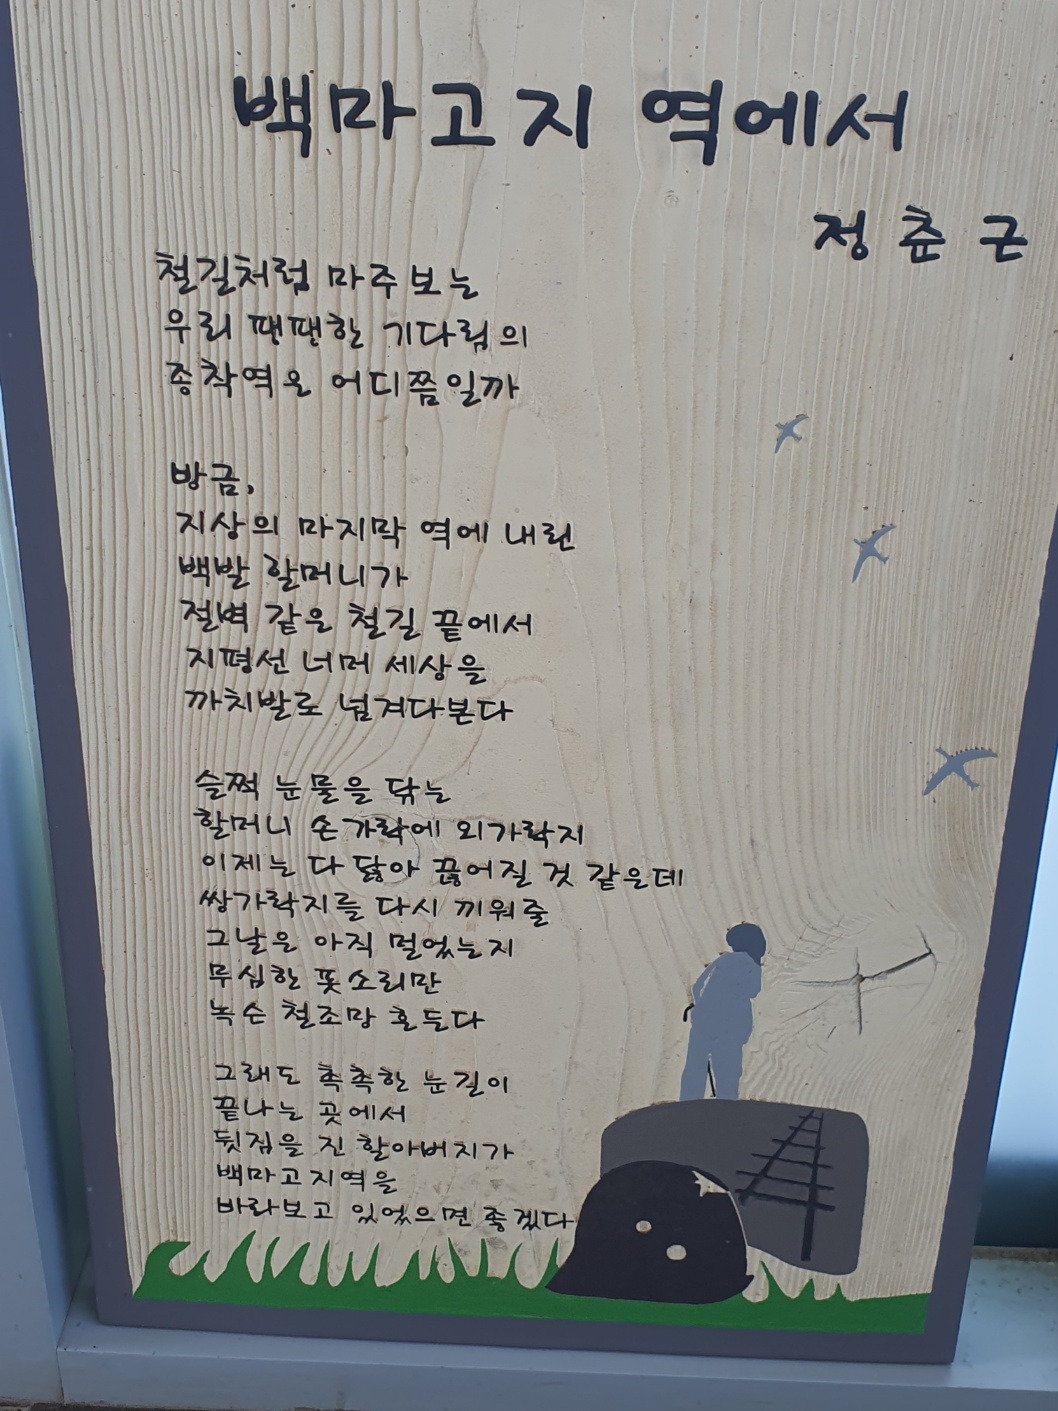 백마고지 역에서
정춘근
철길처럼 마주 보는
우리 땡땡한 기다림의
종착역은 어디쯤일까
방금,
지상의 마지막 역에 내린
백발 할머니가
절벽 같은 철길 끝에서
지평선 너머 세상을
까치발로 넘겨다본다
슬쩍 눈물을 닦는
할머니 손가락에 외가락지
이제는 다 닳아 끊어질 것 같은데
쌍가락지를 다시 끼워줄
그날은 아직 멀었는지
무심한 풋소리만
녹슨 철조망 흔든다
그래도 촉촉한 눈길이
끝나는 곳에서
뒷짐을 진 할아버지가
백마고지역을
바라보고 있었으면 좋겠다